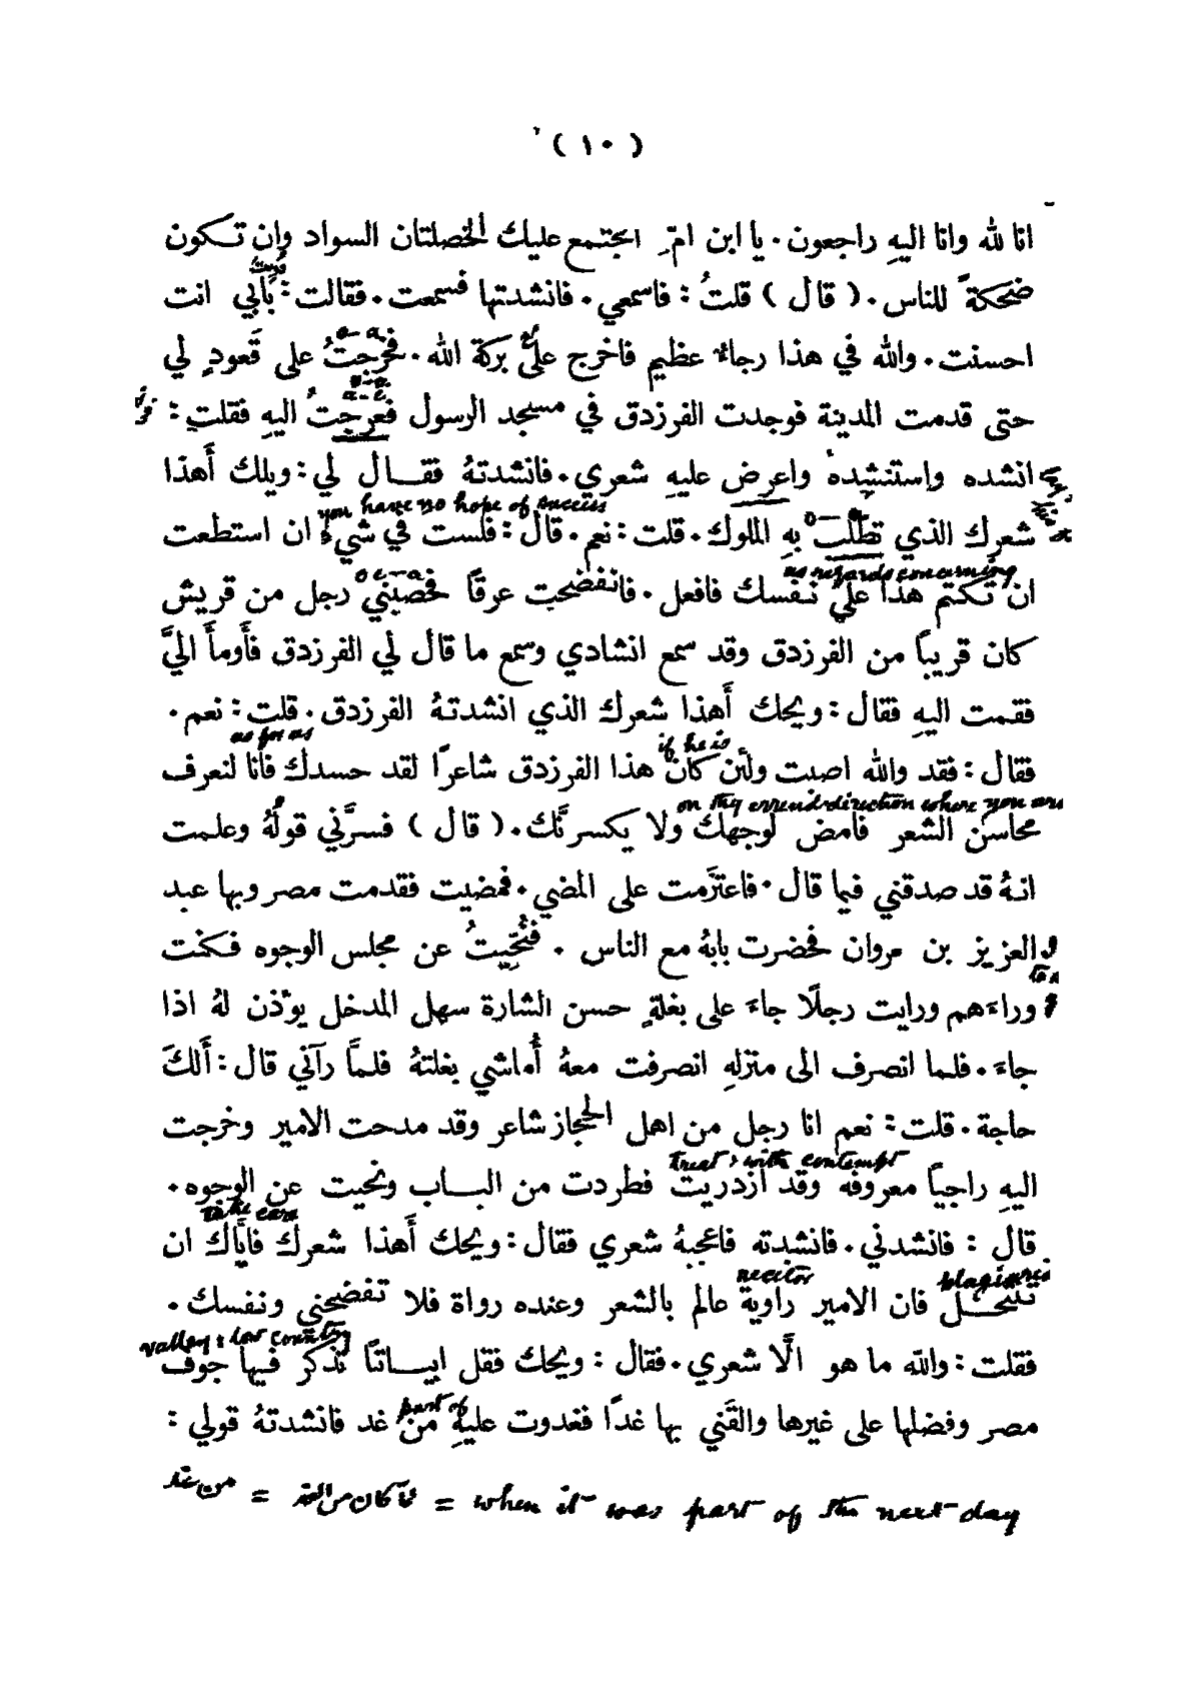 ( ١٠ )
انا لله وانا اليهِ راجعون. يا ابن امّ. ايجتمع عليك الخصلتان السواد وان تكون
ضحكةً للناس. ( قال ) قلتُ: فاسمعي. فانشدتها فسمعت. فقالت: بأبي انت
احسنت. والله في هذا رجاءٌ عظيم فاخرج على بركة الله. فخرجتُ على قَعودٍ لي
حتى قدمت المدينة فوجدت الفرزدق في مسجد الرسول فعرجتُ اليهِ فقلت:
انشده واستنشده واعرض عليهِ شعري. فانشدتهُ فقال لي: ويلك أَهذا
you have no hope of success
شعرك الذي تطلب بهِ الملوك. قلت: نعم. قال: فلست في شيءٍ ان استطعت
as regards concerning
ان تكتم هذا على نفسك فافعل. فانفضحت عرقًا فحصبني رجل من قريش
كان قريبًا من الفرزدق وقد سمع انشادي وسمع ما قال لي الفرزدق فأَومأَ اليَّ
فقمت اليهِ فقال: ويحك أَهذا شعرك الذي انشدتهُ الفرزدق. قلت: نعم.
as for as if he is
فقال: فقد والله اصبت ولئن كان هذا الفرزدق شاعرًا لقد حسدك فانا لنعرف
on thy errand direction where you are
محاسن الشعر فامض لوجهك ولا يكسرنَّك. ( قال ) فسرَّني قولهُ وعلمت
انهُ قد صدقني فيما قال. فاعتزَمت على المضي. فمضيت فقدمت مصر وبها عبد
العزيز بن مروان فحضرت بابهُ مع الناس. فنُحِّيتُ عن مجلس الوجوه فكنت
وراءهم ورايت رجلًا جاءَ على بغلةٍ حسن الشارة سهل المدخل يوّذن لهُ اذا
جاءَ. فلما انصرف الى منزلهِ انصرفت معهُ أُماشي بغلتهُ فلمَّا رآني قال: أَلكَ
حاجة. قلت: نعم انا رجل من اهل الحجاز شاعر وقد مدحت الامير وخرجت
treat with contempt
اليهِ راجيًا معروفه وقد ازدريت فطردت من الباب ونحيت عن الوجوه.
take care
قال: فانشدني. فانشدته فاعجبهُ شعري فقال: ويحك أَهذا شعرك فايَّاك ان
recitor
تنتحل فان الامير راوية عالم بالشعر وعنده رواة فلا تفضحني ونفسك.
valley: low country
فقلت: والله ما هو الَّا شعري. فقال: ويحك فقل ابياتًا تذكر فيها جوف
part of
مصر وفضلها على غيرها والقَني بها غدًا فغدوت عليهِ من غد فانشدتهُ قولي:
من غد = لما كان من الغد = when it was part of the next day